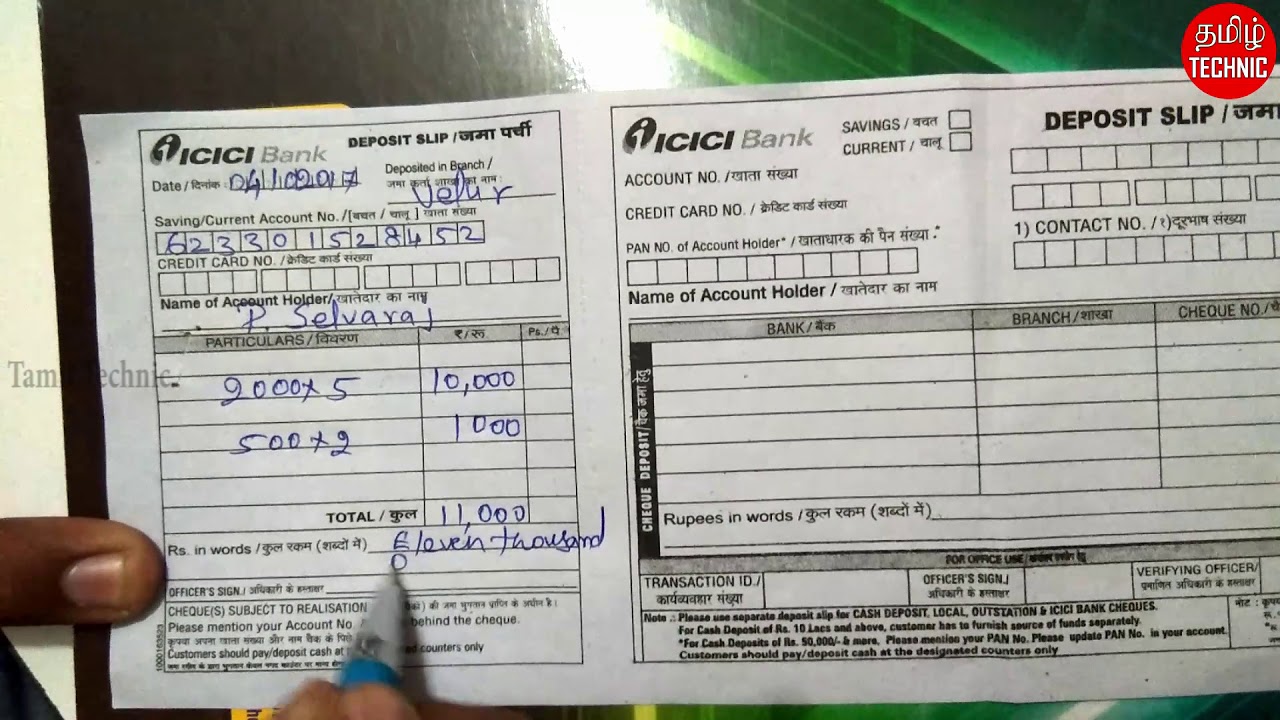 தமிழ்
TECHNIC
ICICI Bank DEPOSIT SLIP / जमा पर्ची
Date / दिनांक : 04102017
Deposited in Branch /
जमा कर्ता शाखा का नाम :
Velur
Saving/Current Account No. /[बचत / चालू ] खाता संख्या
623301528452
CREDIT CARD NO. / क्रेडिट कार्ड संख्या
Name of Account Holder/ खातेदार का नाम
P. Selvaraj
PARTICULARS / विवरण ₹/रू Ps./पै
2000x5 10,000
500x2 1000
TOTAL / कुल 11,000
Rs. in words / कुल रकम (शब्दों में) Eleven thousand
O
OFFICER'S SIGN. / अधिकारी के हस्ताक्षर
CHEQUE(S) SUBJECT TO REALISATION की जमा भुगतान प्राप्ति के अधीन है।
Please mention your Account No. behind the cheque.
कृपया अपना खाता संख्या और नाम चैक के
Customers should pay/deposit cash at counters only
Tamil Technic.
ICICI Bank
SAVINGS / बचत
CURRENT / चालू
DEPOSIT SLIP / जमा
ACCOUNT NO. / खाता संख्या
CREDIT CARD NO. / क्रेडिट कार्ड संख्या
PAN NO. of Account Holder* / खाताधारक की पैन संख्या :*
1) CONTACT NO. / १)दूरभाष संख्या
Name of Account Holder / खातेदार का नाम
BANK / बैंक BRANCH / शाखा CHEQUE NO./
CHEQUE DEPOSIT/चैक जमा हेतु
Rupees in words / कुल रकम (शब्दों में)
FOR OFFICE USE /
TRANSACTION ID./
कार्यव्यवहार संख्या
OFFICER'S SIGN./
अधिकारी के हस्ताक्षर
VERIFYING OFFICER/
प्रमाणित अधिकारी के हस्ताक्षर
Note :. Please use separate deposit slip for CASH DEPOSIT, LOCAL, OUTSTATION & ICICI BANK CHEQUES.
For Cash Deposit of Rs. 10 Lacs and above, customer has to furnish source of funds separately.
*For Cash Deposits of Rs. 50,000/- & more, Please mention your PAN No. Please update PAN No. in your account.
Customers should pay/deposit cash at the designated counters only
नोट :